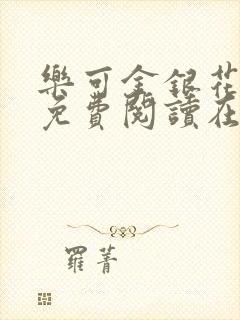 樂可金銀花
免費閱讀在
羅菁